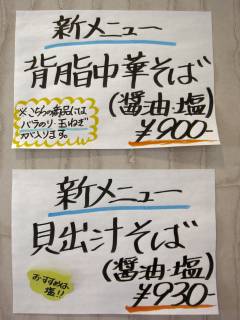 新メニュー
背脂中華そば
(醤油・塩)
¥900-
※こちらの商品には
バラのり・玉ねぎ
が入ります。
新メニュー
見出汁そば
(醤油・塩)
¥930-
おすすめは
塩!!